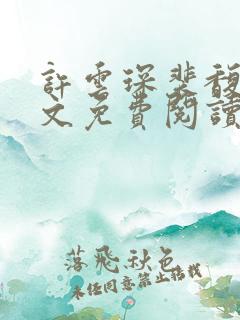 許雲琛裴馥
文免費閱讀
落飛秋色
未经同意禁止搭载